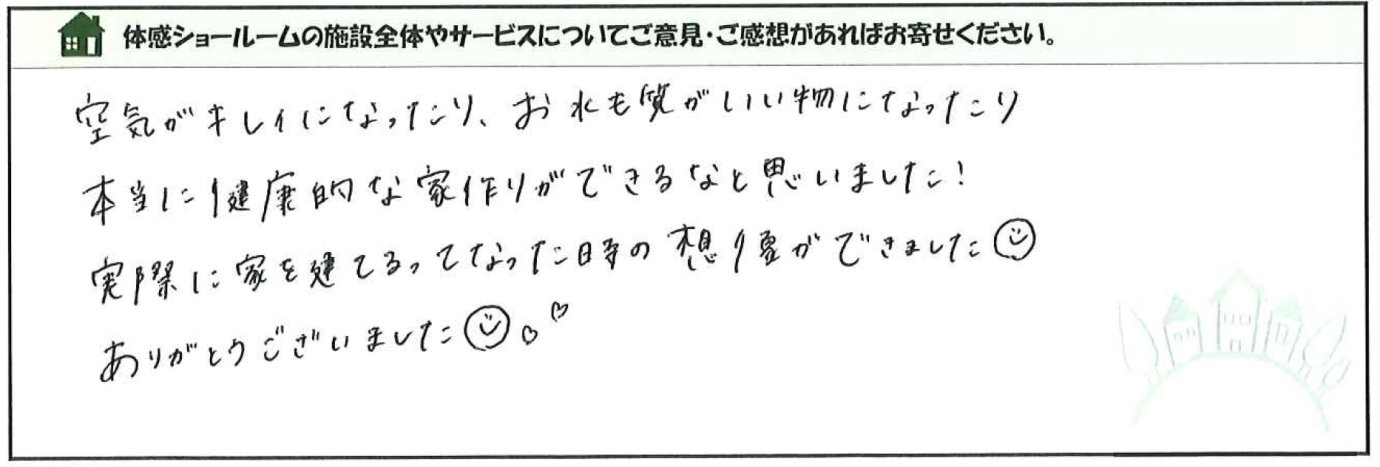 体感ショールームの施設全体やサービスについてご意見・ご感想があればお寄せください。
空気がキレイになったり、お水も質がいい物になったり
本当に健康的な家作りができるなと思いました!
実際に家を建てるってなった時の想像ができました
ありがとうございました